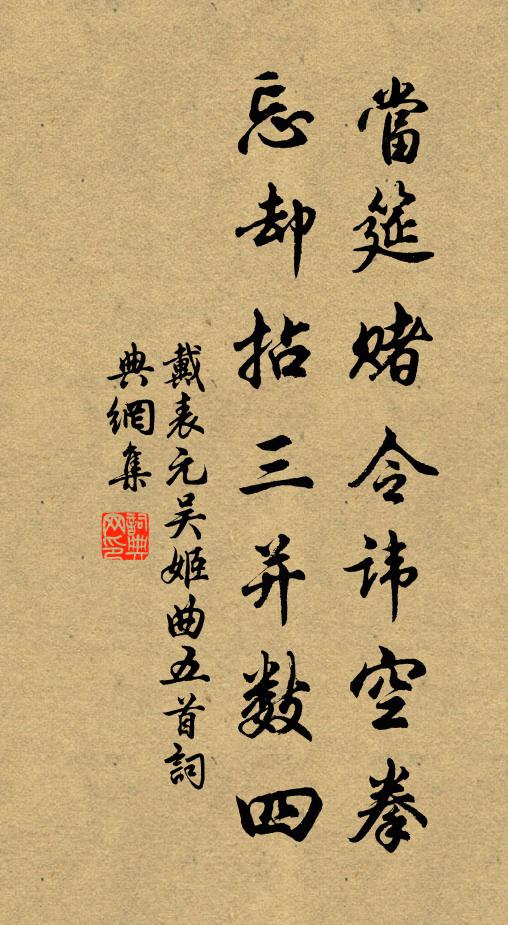 當筵賭令諱空拳
忘却拈三并數四
戴表元吴姬曲五首詞
典網集
詞典网印